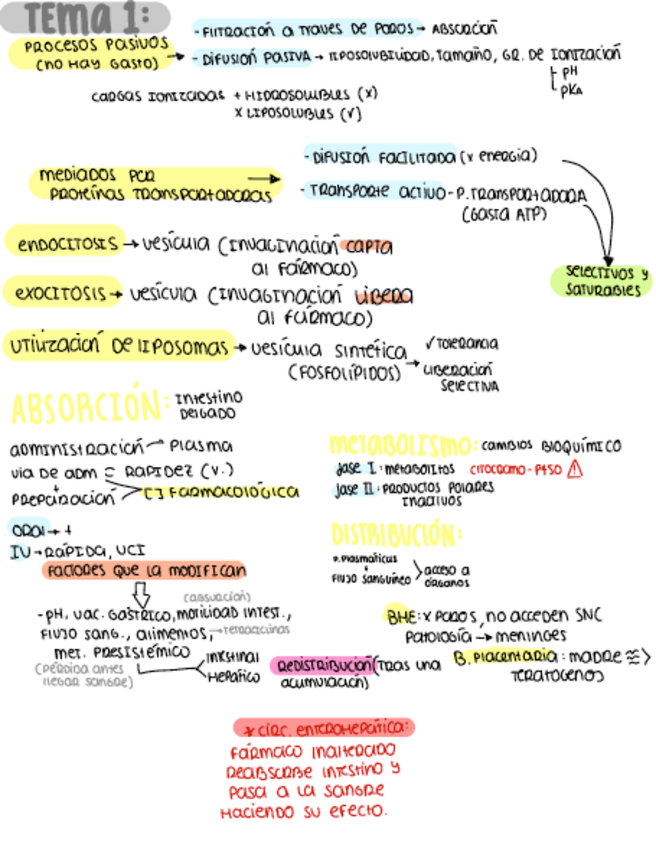 TEMA 1:
PROCESOS PASIVOS
(NO HAY GASTO) →
- FILTRACIÓN A TRAVES DE POROS → ABSORCIÓN
- DIFUSIÓN PASIVA → LIPOSOLUBILIDAD, TAMAÑO, GR. DE IONIZACIÓN
PH
PKA
CARGAS IONIZADAS + HIDROSOLUBLES (X)
X LIPOSOLUBLES (V)
MEDIADOS POR
PROTEÍNAS TRANSPORTADORAS →
- DIFUSIÓN FACILITADA (X ENERGIA)
- TRANSPORTE ACTIVO - P. TRANSPORTADORA
(GASTA ATP)
SELECTIVOS Y
SATURABLES
ENDOCITOSIS → VESÍCULA (INVAGINACIÓN CAPTA
AL FÁRMACO)
EXOCITOSIS → VESÍCULA (INVAGINACIÓN LIBERA
AL FÁRMACO)
UTILIZACIÓN DE LIPOSOMAS → VESÍCULA SINTÉTICA
(FOSFOLÍPIDOS) →
√ TOLERANCIA
LIBERACIÓN
SELECTIVA
ABSORCIÓN: INTESTINO
DELGADO
ADMINISTRACIÓN → PLASMA
VIA DE ADM = RAPIDEZ (V.)
+
PREPARACIÓN
[] FARMACOLÓGICA
ORAL → +
IV → RÁPIDA, UCI
FACTORES QUE LA MODIFICAN
(ABSORCIÓN)
- PH, VAC. GÁSTRICO, MOTILIDAD INTEST.,
FLUJO SANG., ALIMENTOS, → TETRACICLINAS
MET. PRESISTÉMICO
(PÉRDIDA ANTES
LLEGAR SANGRE)
INTESTINAL
HEPÁTICO
METABOLISMO: CAMBIOS BIOQUÍMICO
FASE I: METABOLITOS CITOCROMO-P450 ⚠
FASE II: PRODUCTOS POLARES
INACTIVOS
DISTRIBUCIÓN:
P. PLASMÁTICAS
+
FLUJO SANGUÍNEO
ACCESO A
ÓRGANOS
BHE: X POROS, NO ACCEDEN SNC
PATOLOGÍA → MENINGES
REDISTRIBUCIÓN (TRAS UNA
ACUMULACIÓN)
B. PLACENTARIA: MADRE ≈>
TERATOGENOS
* CIRC. ENTEROHEPÁTICA:
FÁRMACO INALTERADO
REABSORBE INTESTINO Y
PASA A LA SANGRE
HACIENDO SU EFECTO.